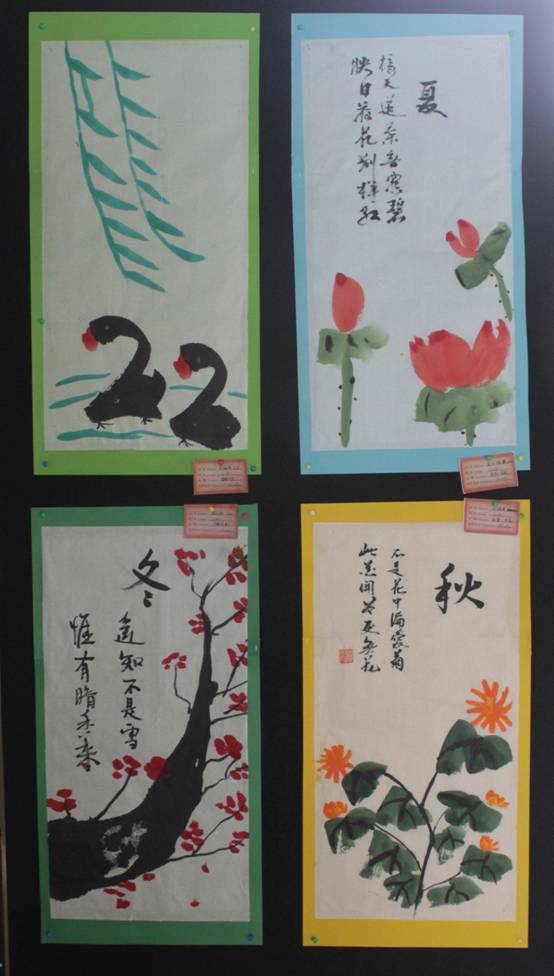 夏
接天莲葉無穷碧
映日荷花别样红
冬
遥知不是雪
惟有暗香来
秋
不是花中偏爱菊
此花開尽更無花